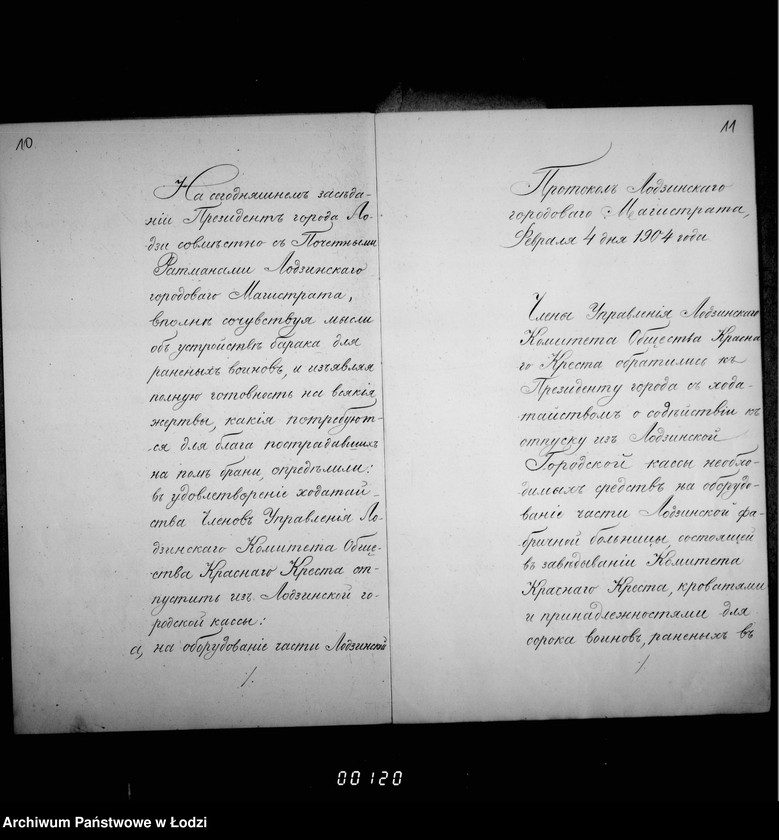 10
На сегодняшнемъ засѣда-
нiи Президентъ города Ло-
дзи совмѣстно съ Почетными
Ратманами Лодзинскаго
городоваго Магистрата,
вполнѣ сочувствуя мысли
объ устройствѣ барака для
раненыхъ воиновъ, и изъявляя
полную готовность на всякiя
жертвы, какiя потребуют-
-ся для блага пострадавшихъ
на полѣ брани, опредѣлили:
въ удовлетворенiе ходатай-
ства Членовъ Управленiя Ло-
дзинскаго Комитета Обще-
ства Краснаго Креста от-
пустить изъ Лодзинской го-
родской кассы:
а, на оборудованiе части Лодзинской
/.
11
Протоколъ Лодзинскаго
городоваго Магистрата,
Февраля 4 дня 1904 года
Члены Управленiя Лодзинскаго
Комитета Общества Красна
го Креста обратились къ
Президенту города съ хода-
тайствомъ о содѣйствiи къ
отпуску изъ Лодзинской
Городской кассы необхо-
димыхъ средствъ на оборудо-
ванiе части Лодзинской фа-
бричной болницы, состоящей
въ завѣдыванiи Комитета
Краснаго Креста, кроватями
и принадлежностями для
сорока воиновъ, раненыхъ въ
/.
00120
Archiwum Państwowe w Łodzi